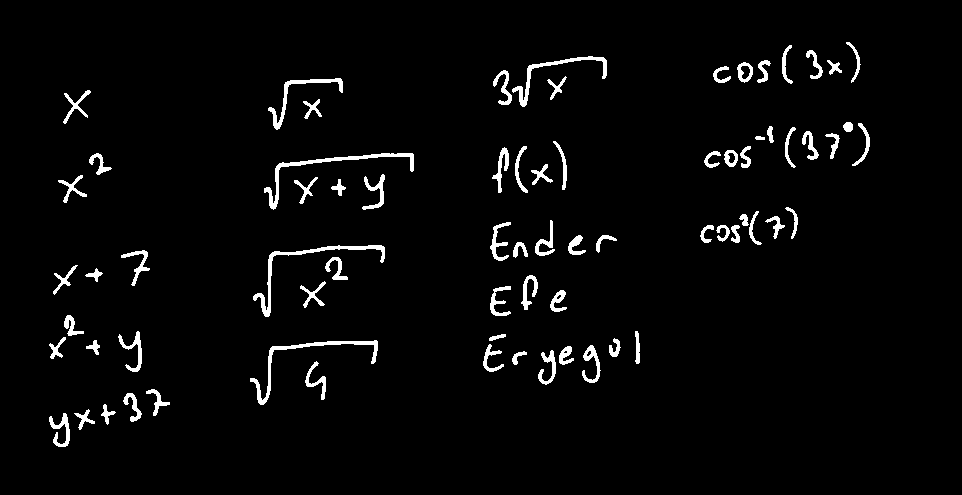 x
x²
x + 7
x² + y
yx + 37
√x
√(x + y)
√(x²)
√9
3√x
f(x)
Ender
Efe
Eryegol
cos(3x)
cos⁻¹(37°)
cos²(7)